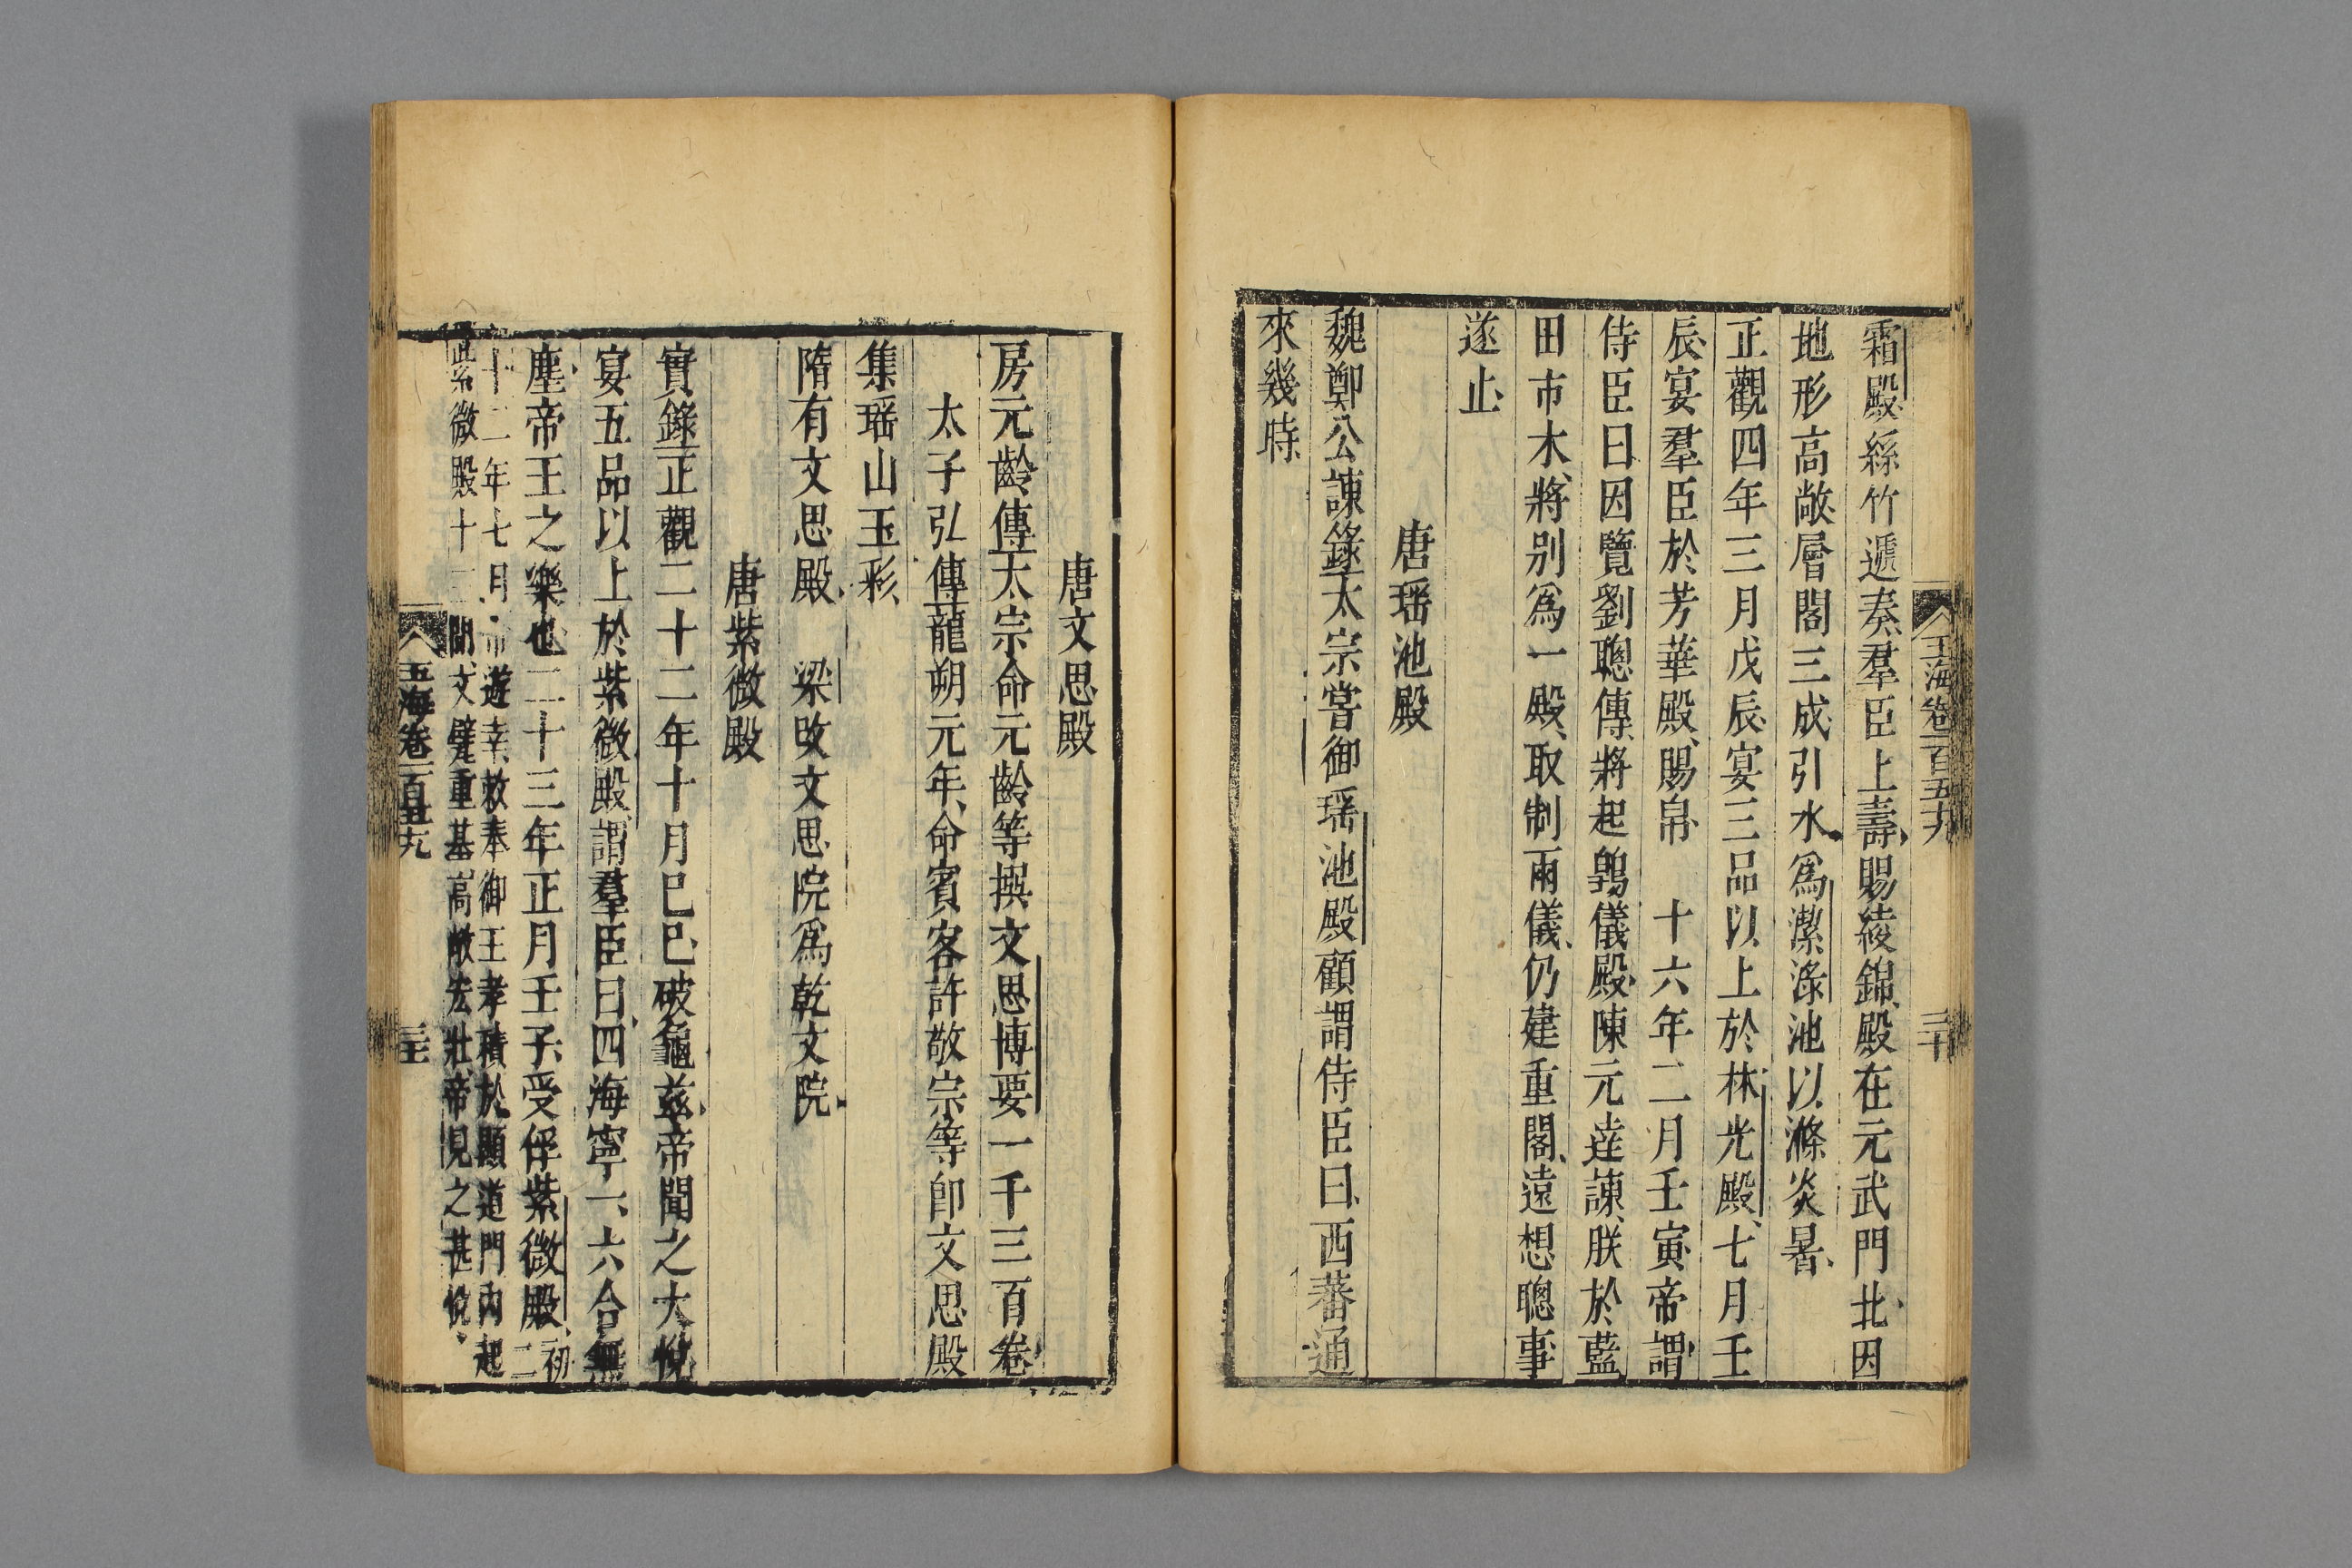 玉海卷一百五十九
三十
霜殿絲竹遞奏羣臣上壽賜綾錦殿在元武門北因
地形高敞層閣三成引水爲潔淥池以滌炎暑
正觀四年三月戊辰宴三品以上於林光殿七月壬
辰宴羣臣於芳華殿賜帛 十六年二月壬寅帝謂
侍臣曰因覽劉聰傳將起鷄儀殿陳元達諫朕於藍
田市木將别爲一殿取制兩儀仍建重閣遠想聰事
遂止
唐瑶池殿
魏鄭公諫錄太宗嘗御瑶池殿顧謂侍臣曰西蕃通
來幾時
唐文思殿
房元齡傳太宗命元齡等撰文思博要一千三百卷
太子弘傳龍朔元年命賓客許敬宗等卽文思殿
集瑶山玉彩
隋有文思殿 梁改文思院爲乾文院
唐紫微殿
實錄正觀二十二年十月己巳破龜茲帝聞之大悅
宴五品以上於紫微殿謂羣臣曰四海寧一六合無
塵帝王之樂也二十三年正月壬子受俘紫微殿初二
十二年七月帝遊幸敕奉御王孝積於顯道門内起
紫微殿十三間文甓重基高敞宏壯帝見之甚悅
玉海卷一百五十九
三十一